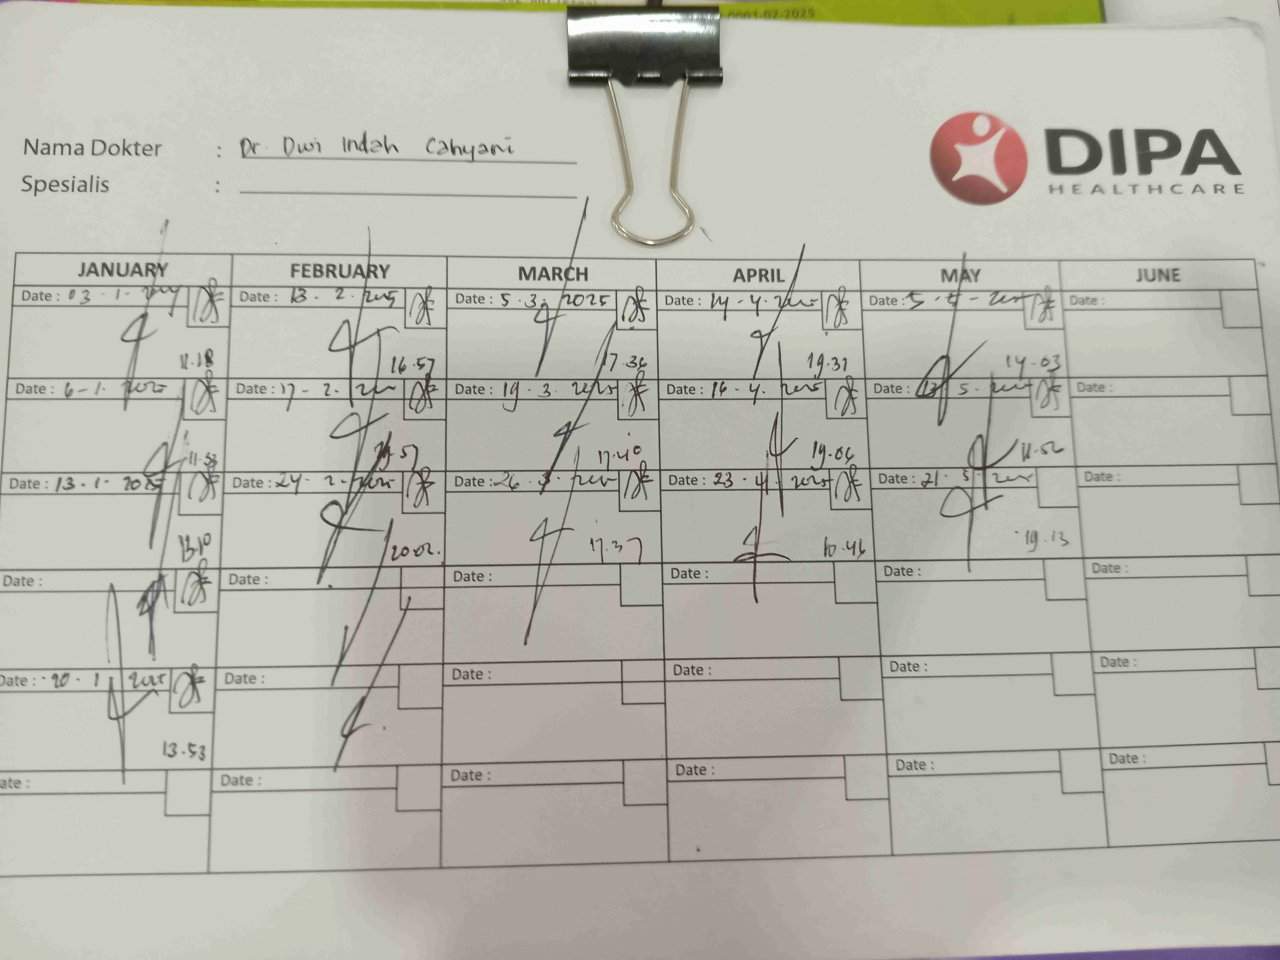 0001-02-2025
Nama Dokter : Dr. Dwi Indah Cahyani
Spesialis :
DIPA
HEALTHCARE
JANUARY FEBRUARY MARCH APRIL MAY JUNE
Date : 03 - 1 - Date : 13 - 2 - 2025 Date : 5 - 3 - 2025 Date : 14 - 4 - 2025 Date : 5 - Date :
11.18 16.57 17.36 19.31 14.03
Date : 6 - 1 - 2025 Date : 17 - 2 - 2025 Date : 19 - 3 - 2025 Date : 16 - 4 - 2025 Date : 5 - 2025 Date :
17.40 19.06 11.52
Date : 13 - 1 - 2025 Date : 24 - 2 - 2025 Date : 26 - 3 - 2025 Date : 23 - 4 - 2025 Date : 21 - 5 - 2025 Date :
13.10 20.02 17.37 10.46 19.13
Date : Date : Date : Date : Date : Date :
Date : 20 - 1 - 2025 Date : Date : Date : Date : Date :
13.53
ate : Date : Date : Date : Date : Date :